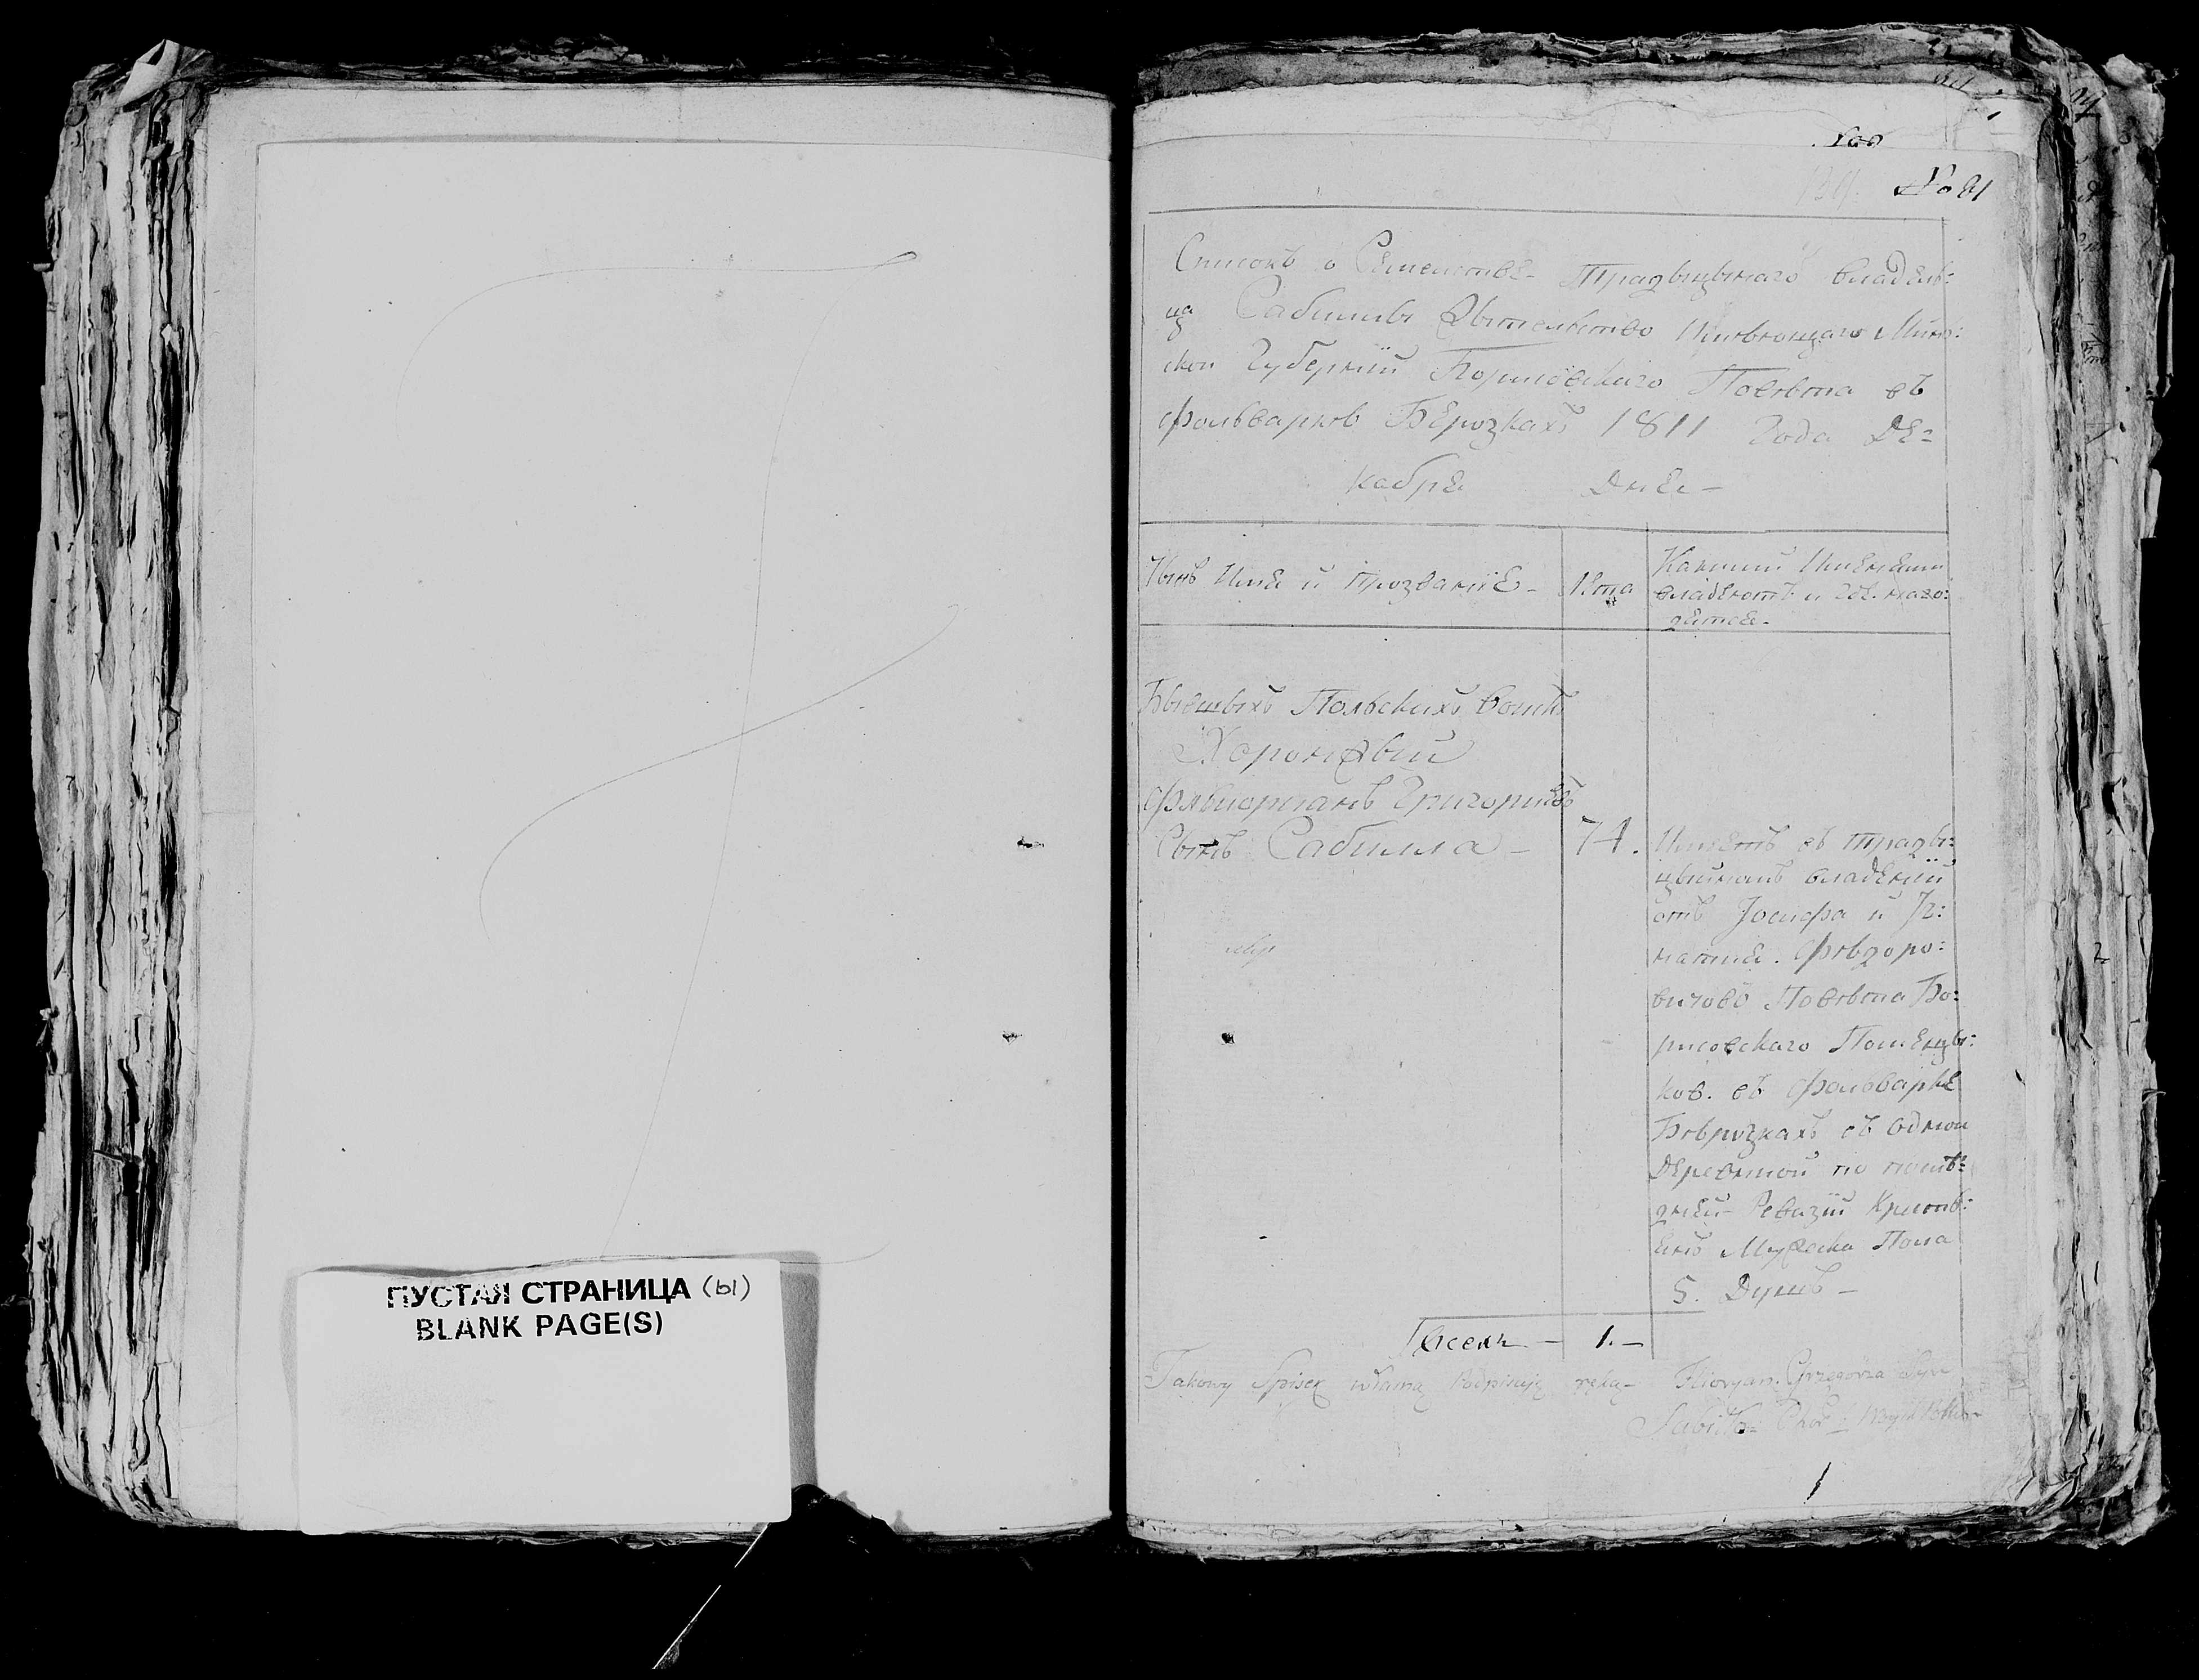 ПУСТАЯ СТРАНИЦА (ы)
BLANK PAGE(S)
№ 61
Списокъ о Семействе Традыцыйнаго владель:
ца Сабиллы Жытельство Имеющаго Мин:
ской Губерніи Борисовскаго Повета въ
фольварке Берозкахъ 1811 Года Де=
кабре Дня —
Чынъ Имя и Прозваніе —
Лета
Какими Именіями
владеютъ и где нахо:
дятся.
Бывшыхъ Польскихъ Войскъ
Хоронжый
Флиорианъ Григорьевъ
Сынъ Сабилла —
74.
Имеетъ въ трады:
цыйномъ владеніи
отъ Іосифа и Іг:
натия Федоро:
вичовъ Повета Бо:
рисовскаго Помещы:
ков. въ фольварке
Берозкахъ съ одной
деревнюй по послѣ:
дней Ревизіи Крестъ:
янъ Мужеска Пола
5. Душъ —
Всехъ — 1. —
Takowy Spisek własną Podpisuję ręką — Flioryan Grzegorza Syn
Sabiłła